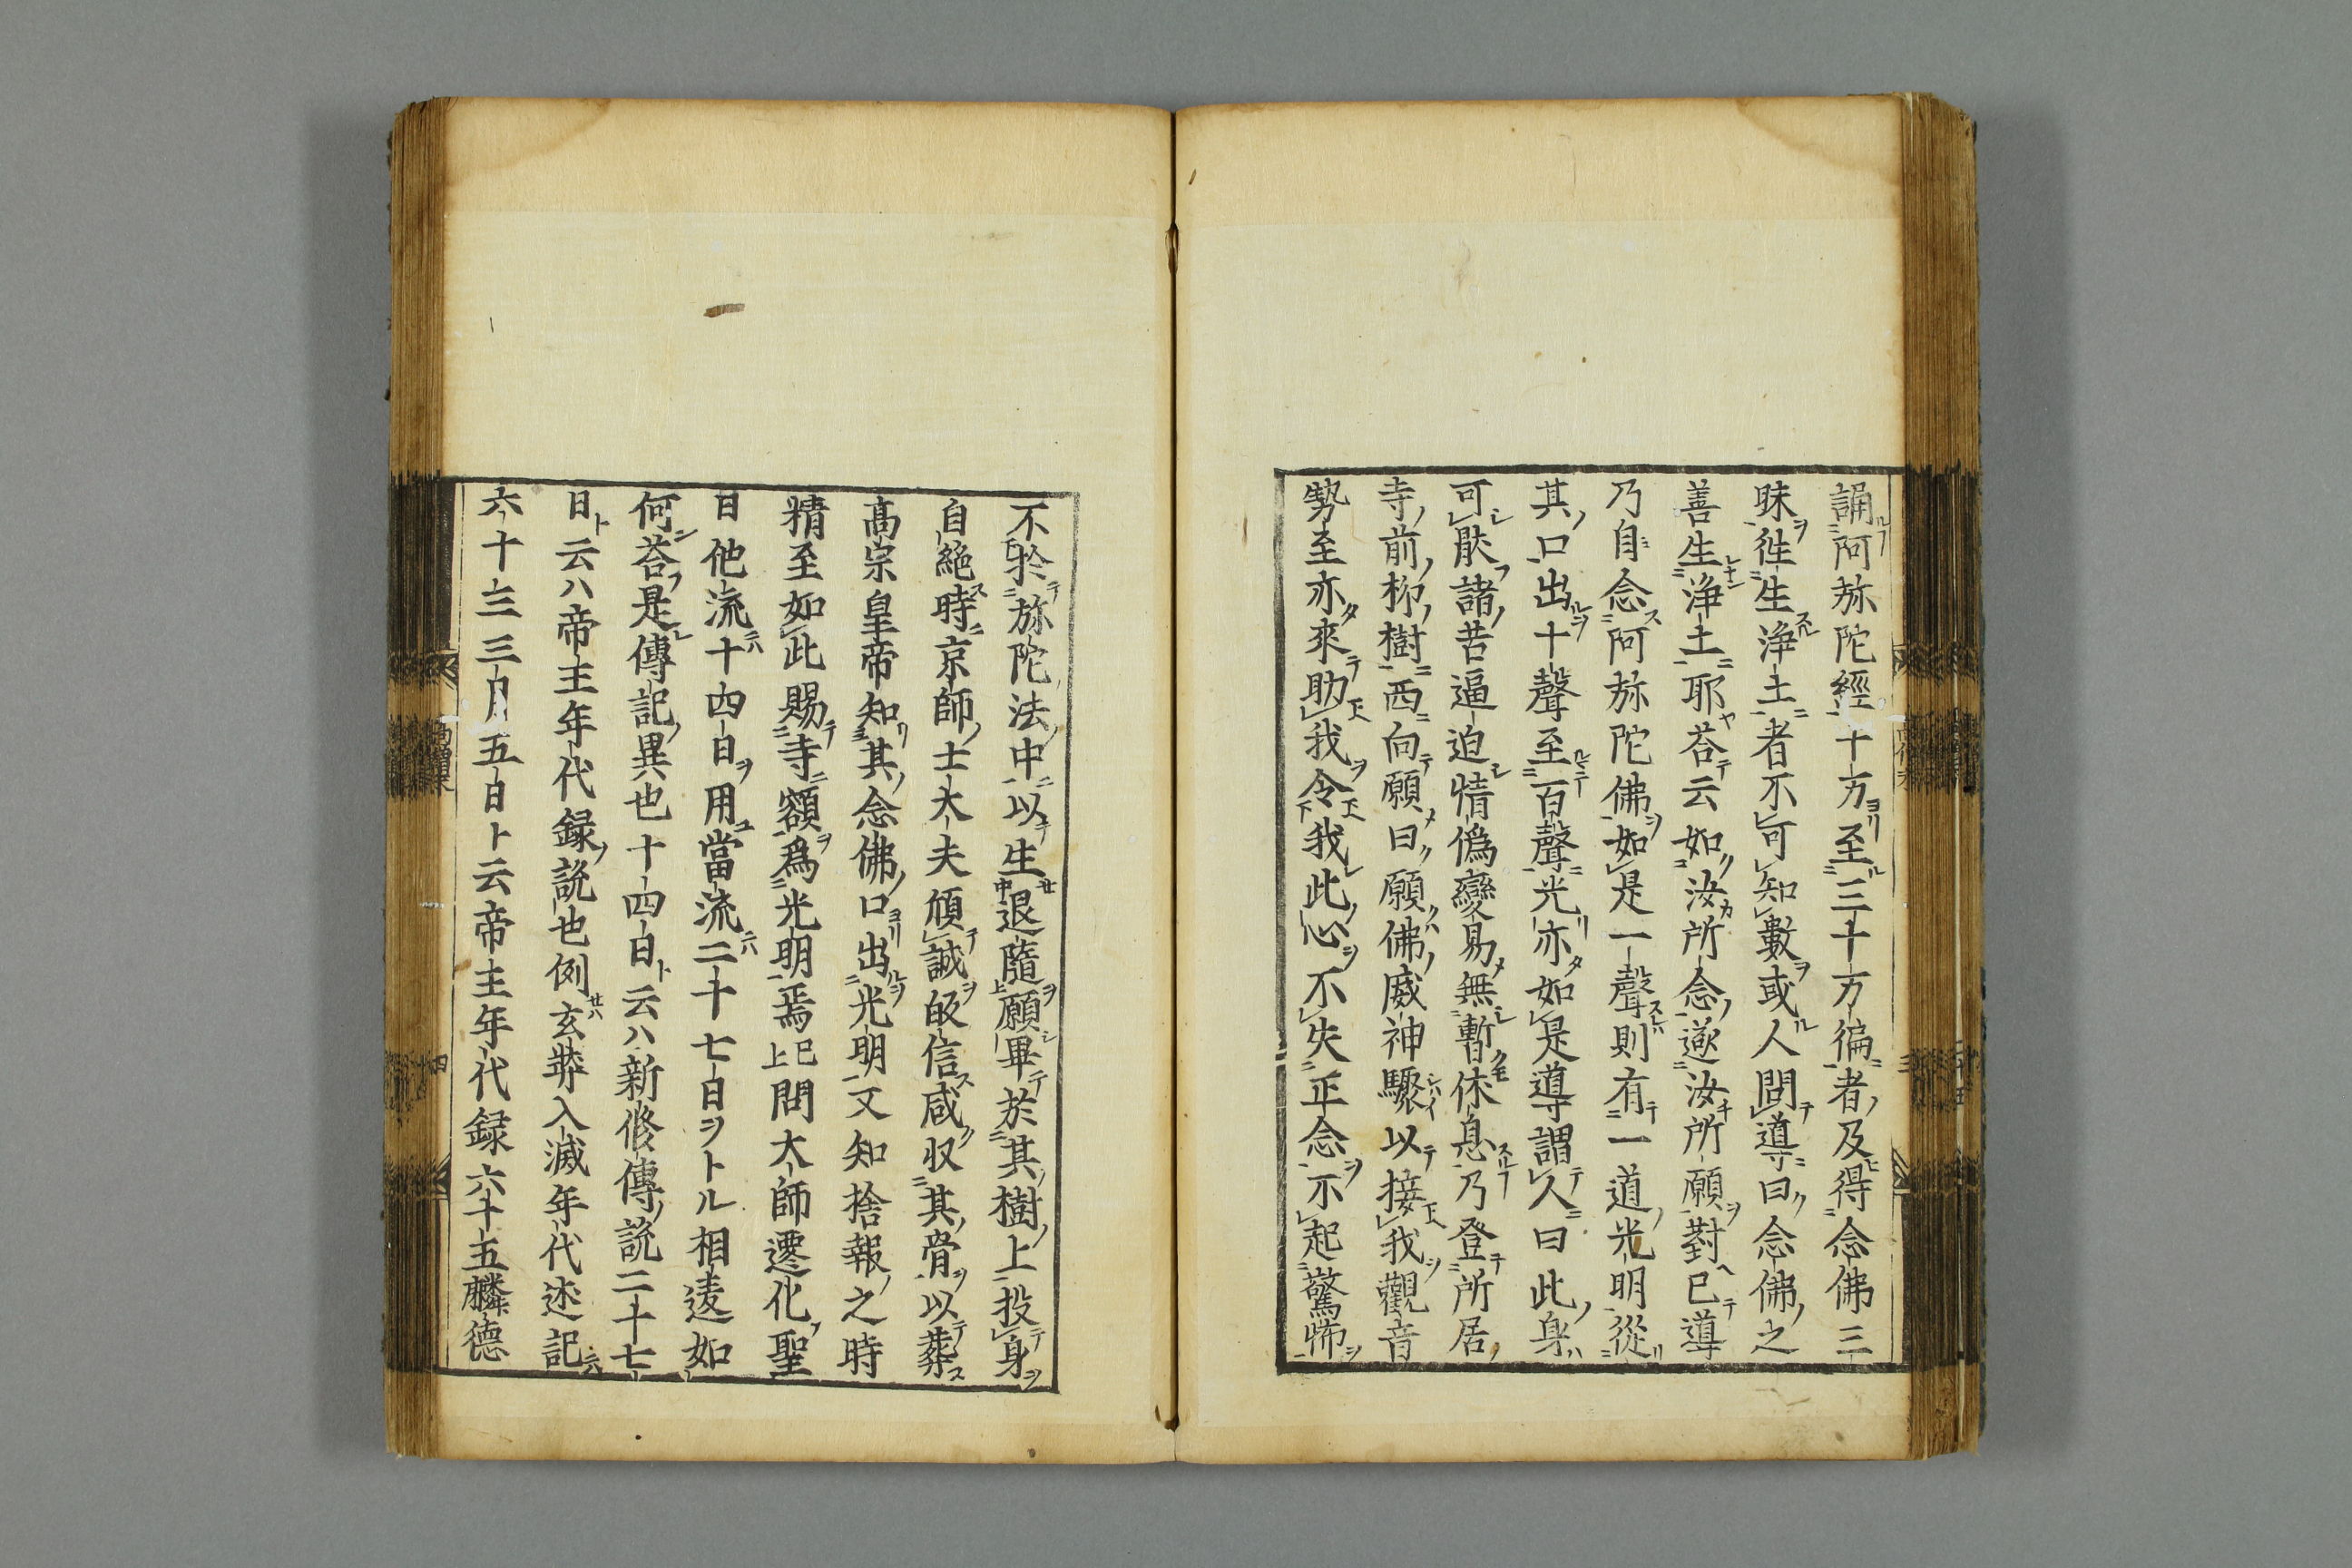 誦阿弥陀經十万至三十万徧者及得念佛三
昧徃生淨土者不可知數或人問導曰念佛之
善生淨土耶荅云如汝所念遂汝所願對已導
乃自念阿弥陀佛如是一聲則有一道光明從
其口出十聲至百聲光亦如是導謂人曰此身
可猒諸苦逼迫情僞變易無暫休息乃登所居
寺前栁樹西向願曰願佛威神驟以接我觀音
勢至亦來助我令我此心不失正念不起驚怖
不於弥陀法中以生退隨願畢於其樹上投身
自絶時京師士大夫傾誠皈信咸収其骨以葬
髙宗皇帝知其念佛口出光明又知捨報之時
精至如此賜寺額爲光明焉已上問大師遷化聖
日他流十四日用當流二十七日ヲトル相違如
何荅是傳記異也十四日ト云ハ新修傳説二十七
日ト云ハ帝王年代録説也例玄奘入滅年代述記
六十三三月五日ト云帝王年代録六十五麟德